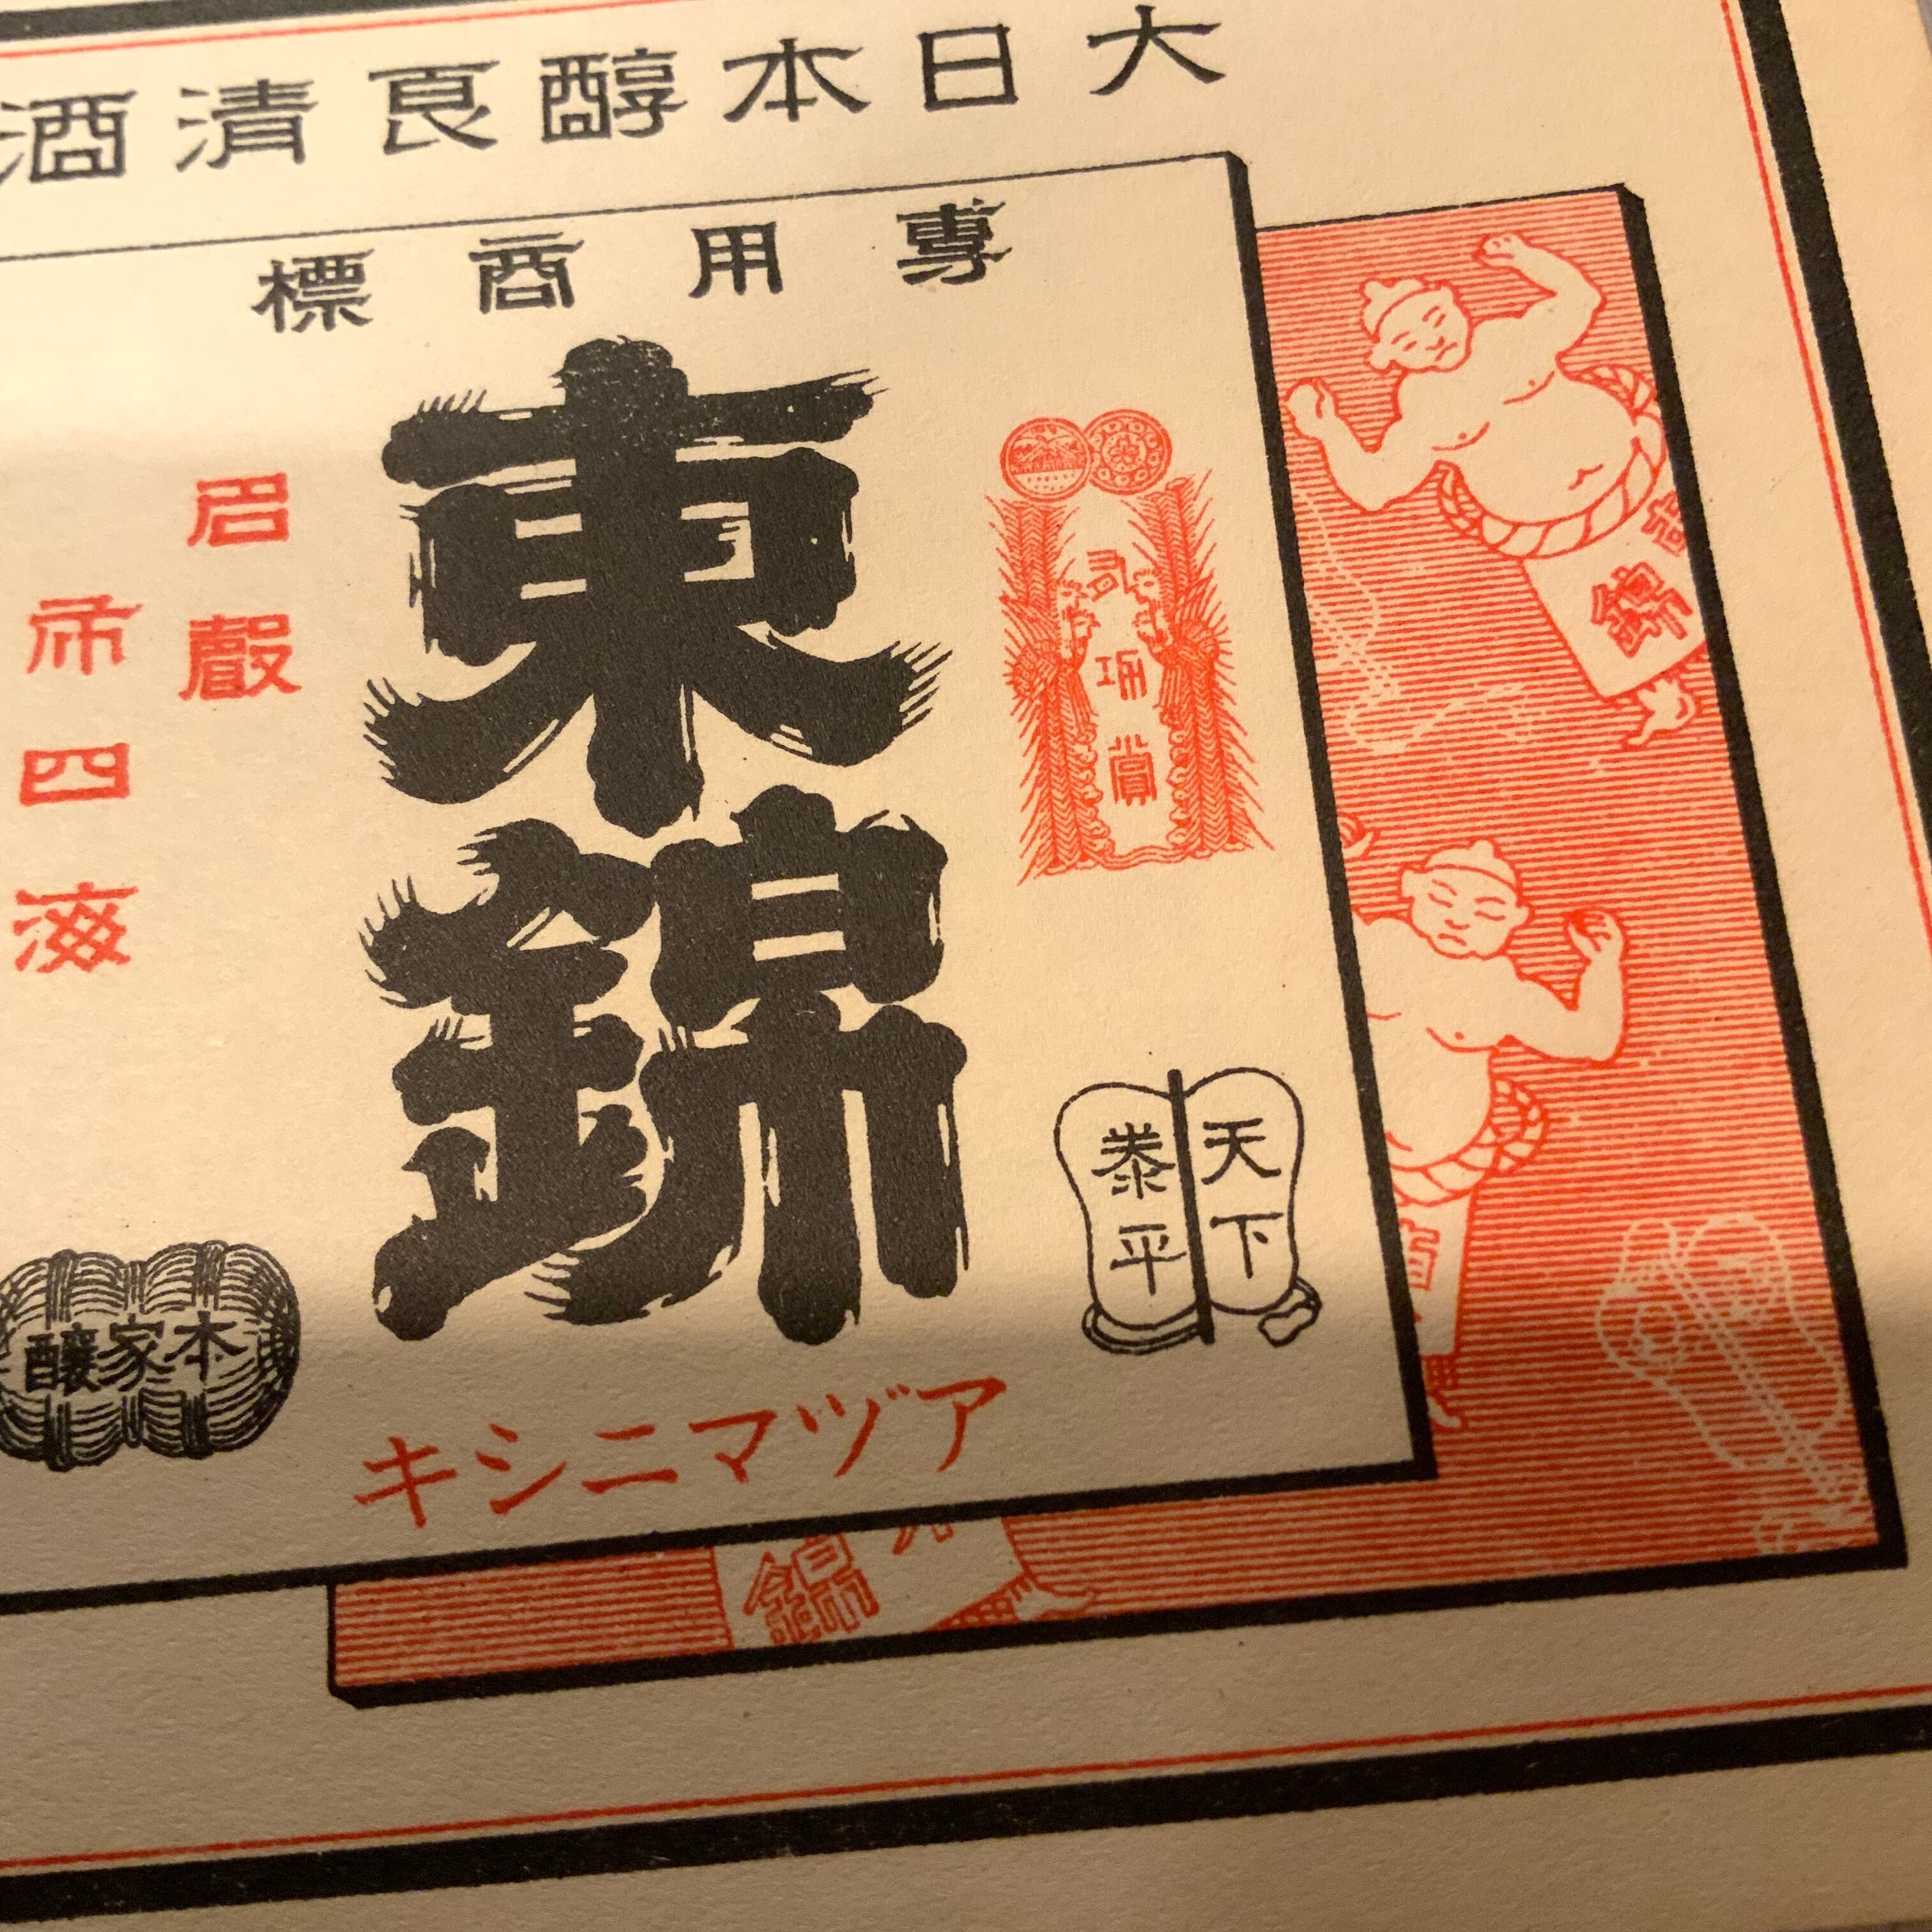 大日本醇良清酒
專用商標
有功賞
天下
泰平
東錦
アヅマニシキ
名聲
布四海
本家釀
錦
錦